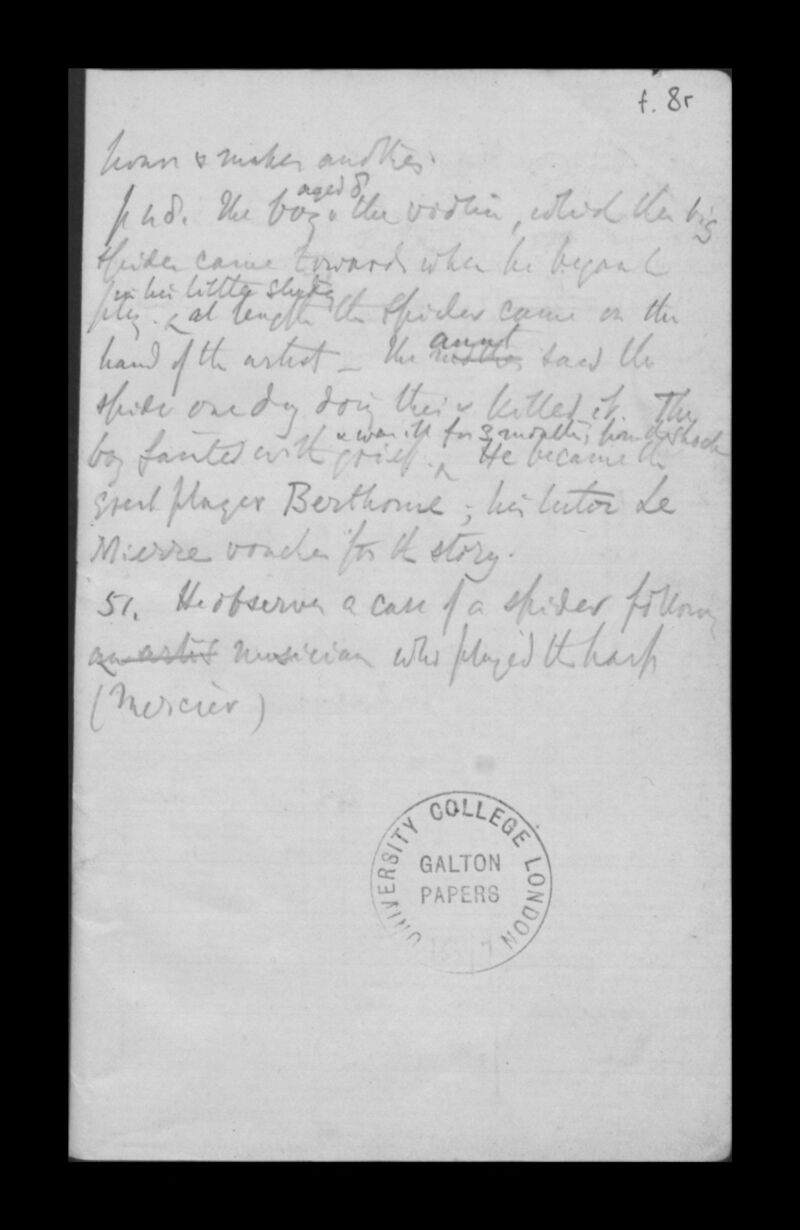 f. 8r
hours & makes another.
p 48. The boy aged 8 & the violin, which the big
spider came towards when he began to
play. in his little study at length the spider came on the
hand of the artist – The mother aunt saw the
spider one day doing this & killed it. The
boy fainted with grief. & was ill for 3 months, from the shock He became the
great player Berthome; his tutor Le
Mierre vouches for the story.
51. He observes a case of a spider following
an artist musician who played the harp
(Mercier)
UNIVERSITY COLLEGE LONDON
GALTON
PAPERS